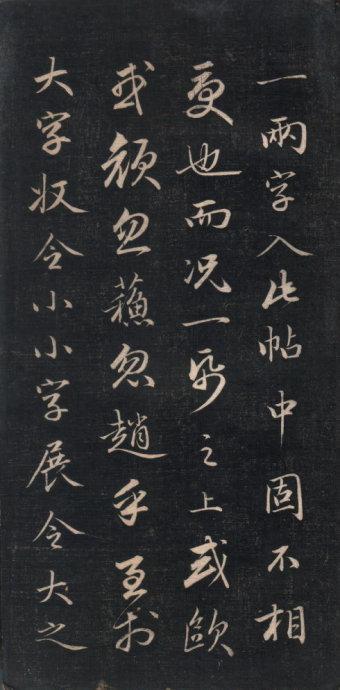 一兩字入此帖中固不相
更也而况一癸之上或歐
或顔忽蘓忽趙乎至於
大字收令小小字展令大之